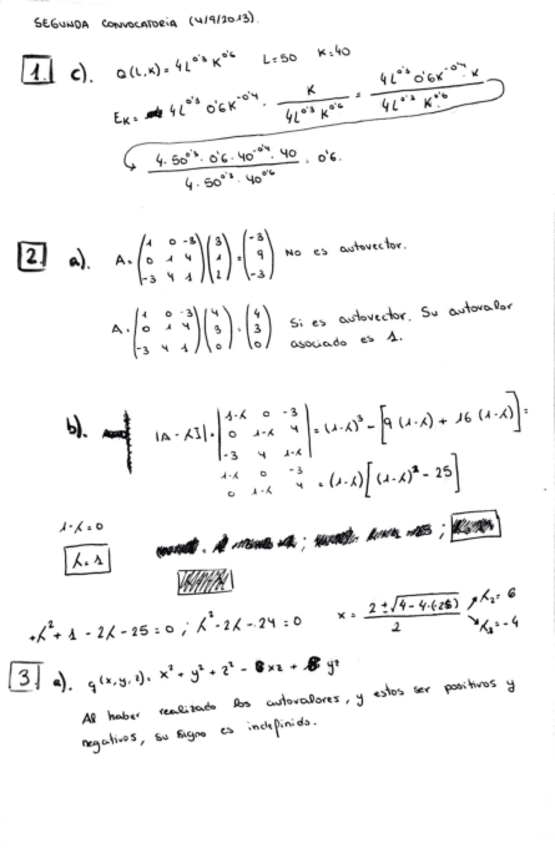 SEGUNDA CONVOCATORIA (4/9/2013).
1. c). Q(L,K) = 4L^0'3 K^0'6 L=50 K=40
E_K = 4L^0'3 0'6K^-0'4 · K / (4L^0'3 K^0'6) = (4L^0'3 0'6K^-0'4 · K) / (4L^0'3 K^0'6)
(4·50^0'3 · 0'6 · 40^-0'4 · 40) / (4·50^0'3 · 40^0'6) = 0'6.
2. a). A = (1 0 -3; 0 1 4; -3 4 1) (3; 1; 2) = (-3; 9; -3) No es autovector.
A = (1 0 -3; 0 1 4; -3 4 1) (4; 3; 0) = (4; 3; 0) Si es autovector. Su autovalor
asociado es 1.
b). |A - λI| = |1-λ 0 -3; 0 1-λ 4; -3 4 1-λ| = (1-λ)³ - [9(1-λ) + 16(1-λ)] =
1-λ 0 -3
0 1-λ 4 = (1-λ)[(1-λ)² - 25]
1-λ=0
λ=1
+λ² + 1 - 2λ - 25 = 0 ; λ² - 2λ - 24 = 0 x = (2 ± √(4 - 4·(-24))) / 2 λ₂ = 6 λ₃ = -4
3. a). q(x,y,z) = x² + y² + z² - 6xz + 8yz
Al haber realizado los autovalores, y estos ser positivos y
negativos, su signo es indefinido.